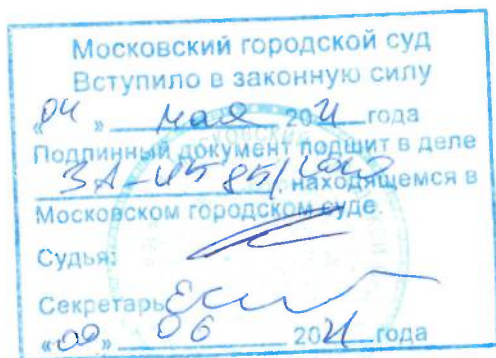 Московский городской суд
Вступило в законную силу
«04» мая 2021 года
Подлинный документ подшит в деле
3А-4585/2020, находящемся в
Московском городском суде.
Судья:
Секретарь
« » 06 2021 года